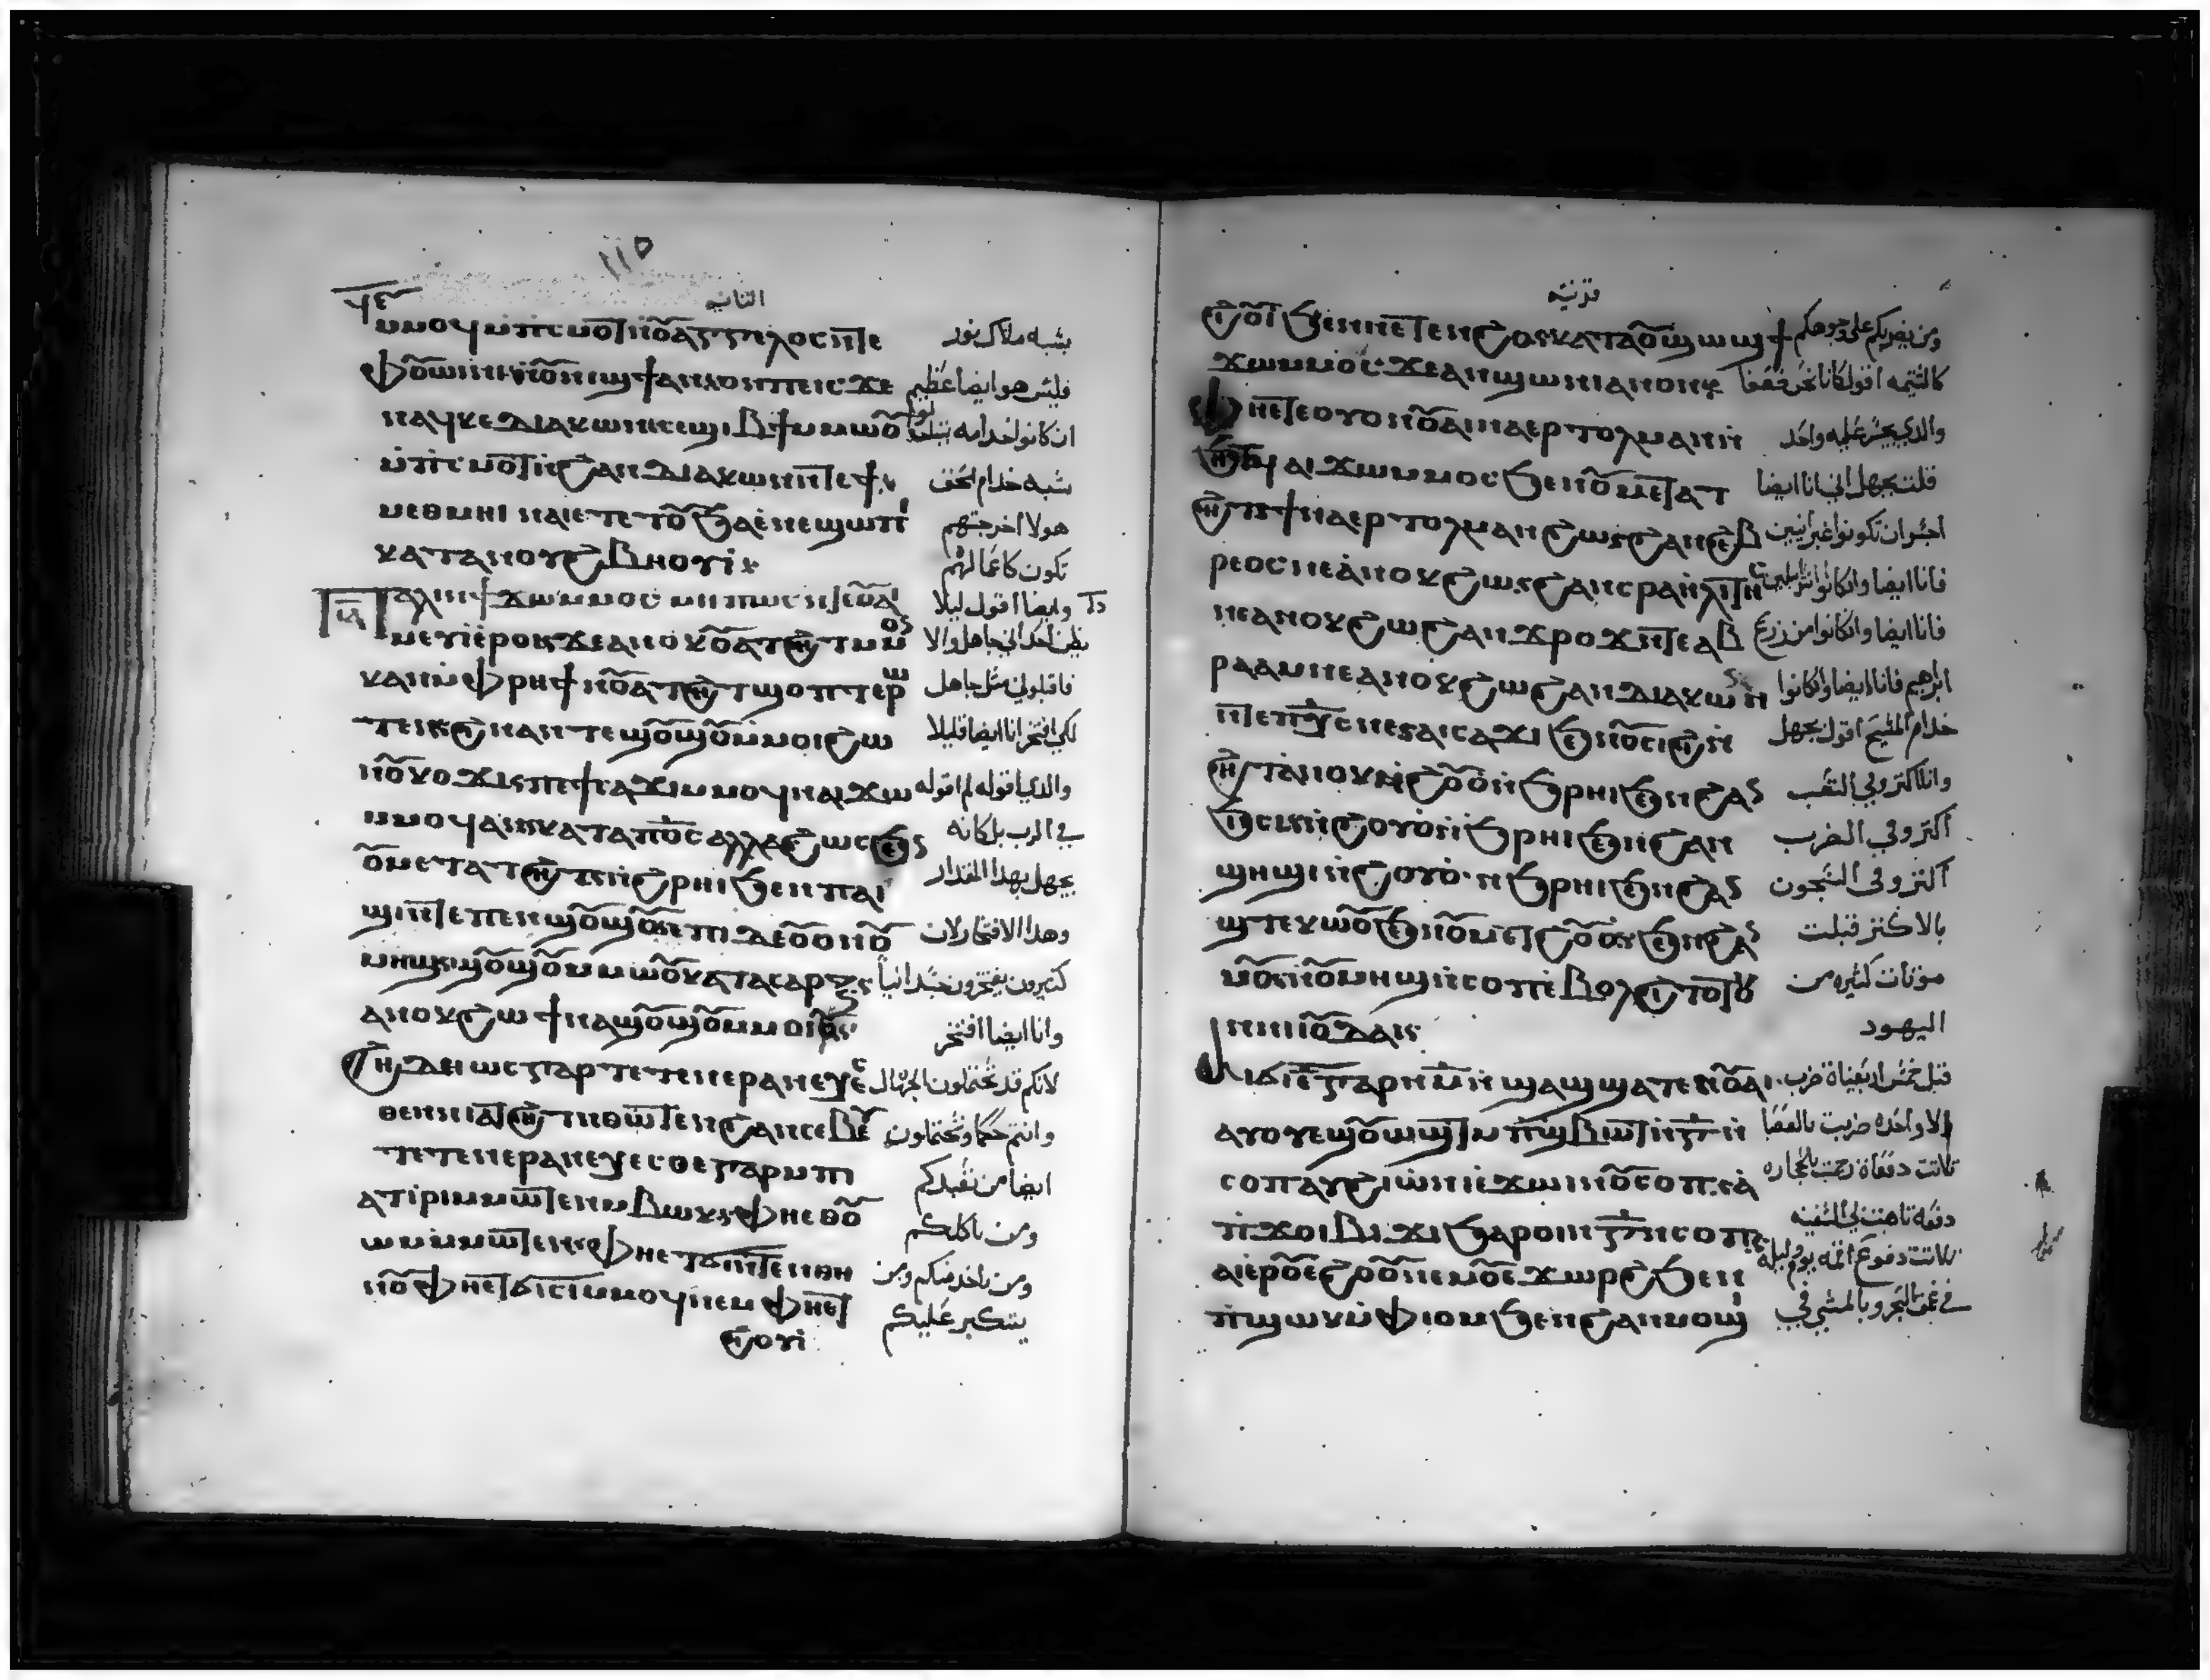 ١١٥
الثانيه
ⲙ̀ⲙⲟϥ ⲙ̀ⲡⲥⲙⲟⲧ ⲛ̀ⲟⲩⲁⲅⲅⲉⲗⲟⲥ ⲛ̀ⲧⲉ بشبه ملاك نور
ⲫⲟⲩⲱⲓⲛⲓ ⲛ̀ⲟⲩⲛⲓϣϯ ⲁⲛ ⲟⲛ ⲡⲉ ⲓⲥϫⲉ فليس هو ايضا عظيم
ⲛⲁϥⲕⲉⲇⲓⲁⲕⲱⲛ ⲥⲉϣⲓⲃϯ ⲙ̀ⲙⲱⲟⲩ ان كانوا خدامه
ⲙ̀ⲡⲥⲙⲟⲧ ⲛ̀ϩⲁⲛⲇⲓⲁⲕⲱⲛ ⲛ̀ⲧⲉ ϯ شبه خدام الحق
ⲙⲉⲑⲙⲏⲓ ⲛⲁⲓ ⲉⲧⲉ ⲧⲟⲩϧⲁⲉ̀ ⲛⲉϣⲱⲡⲓ هولا اخرجتهم
ⲕⲁⲧⲁ ⲛⲟⲩϩⲃⲏⲟⲩⲓ̀ تكون كاعمالهم
ⲡⲁⲗⲓⲛ ϯϫⲱ ⲙ̀ⲙⲟⲥ ⲙⲏⲡⲱⲥ ⲛ̀ⲧⲉ ⲟⲩⲁⲓ وايضا اقول ليلا
ⲙⲉⲩⲓ̀ ⲉⲣⲟⲓ ϫⲉ ⲁⲛⲟⲕ ⲟⲩⲁⲧϩⲏⲧ ⲙ̀ⲙⲟⲛ يظن احد اني جاهل والا
ⲕⲁⲛ ⲙ̀ⲫⲣⲏϯ ⲛ̀ⲟⲩⲁⲧϩⲏⲧ ϣⲟⲡⲧ ⲉⲣⲱ فاقبلوني مثل جاهل
ⲧⲉⲛ ϩⲓⲛⲁ ⲛ̀ⲧⲉϣⲟⲩϣⲟⲩ ⲙ̀ⲙⲟⲓ ϩⲱ لكي افتخر انا ايضا قليلا
ⲛ̀ⲟⲩⲕⲟⲩϫⲓ ⲡⲉϯⲥⲁϫⲓ ⲙ̀ⲙⲟϥ ⲛⲁⲓϫⲱ والذي اقوله لم اقوله
ⲙ̀ⲙⲟϥ ⲁⲛ ⲕⲁⲧⲁ ⲡⲟ̅ⲥ̅ ⲁⲗⲗⲁ ϩⲱⲥ ϧⲉⲛ في الرب بل كانه
ⲟⲩⲙⲉⲧⲁⲧϩⲏⲧ ⲛ̀ϩⲣⲏⲓ ϧⲉⲛ ⲡⲁⲓ بجهل بهذا المقدار
ϣⲓ ⲛ̀ⲧⲉ ⲡⲉⲛϣⲟⲩϣⲟⲩ ⲉⲡⲓⲇⲉ ⲟⲩⲟⲛ ⲟⲩ وهذا الافتخار لان
ⲙⲏϣ ϣⲟⲩϣⲟⲩ ⲙ̀ⲙⲱⲟⲩ ⲕⲁⲧⲁ ⲥⲁⲣⲝ كثيرون يفتخرون جسدانيا
ⲁⲛⲟⲕ ϩⲱ ϯⲛⲁϣⲟⲩϣⲟⲩ ⲙ̀ⲙⲟⲓ وانا ايضا افتخر
ϩⲏⲇⲉⲱⲥ ⲅⲁⲣ ⲧⲉⲧⲉⲛⲉⲣⲁⲛⲉⲭⲉⲥ لانكم قد تحتملون الجهال
ⲑⲉ ⲛ̀ⲛⲓⲁⲧϩⲏⲧ ⲛ̀ⲑⲱⲧⲉⲛ ϩⲁⲛⲥⲁⲃⲉⲩ وانتم حكما وتحتملون
ⲧⲉⲧⲉⲛⲉⲣⲁⲛⲉⲭⲉⲥⲑⲉ ⲅⲁⲣ ⲙ̀ⲫⲏ ايضا من تعبدكم
ⲉⲧⲓⲣⲓ ⲙ̀ⲙⲱⲧⲉⲛ ⲙ̀ⲃⲱⲕ ⲫⲏⲉⲑⲟⲩ ومن ياكلكم
ⲱⲙ ⲙ̀ⲙⲱⲧⲉⲛ ⲫⲏⲉⲧϭⲓ ⲛ̀ⲧⲉⲛ ⲑⲏ ومن ياخد منكم ومن
ⲛⲟⲩ ⲫⲏⲉⲧϭⲓⲥⲓ ⲙ̀ⲙⲟϥ ⲛⲉⲙ ⲫⲏⲉⲧ يتكبر عليكم
ϩⲓⲟⲩⲓ̀
قرنتيه
ϩⲓⲟⲩⲓ̀ ϧⲉⲛ ⲡⲉⲧⲉⲛϩⲟ ⲕⲁⲧⲁ ⲟⲩϣⲱϣ ϯ ومن يضربكم على وجوهكم
ϫⲱ ⲙ̀ⲙⲟⲥ ϫⲉ ⲁⲛϣⲱⲛⲓ ⲁⲛⲟⲛ كالشتيمه اقول كاننا نحن ضعفا
ⲫⲏⲉⲧⲉ ⲟⲩⲟⲛ ⲟⲩⲁⲓ ⲛⲁⲉⲣⲧⲟⲗⲙⲁⲛ ⲛ̀ والذي يجسر عليه واحد
ϧⲏⲧϥ ⲁⲓϫⲱ ⲙ̀ⲙⲟⲥ ϧⲉⲛ ⲟⲩⲙⲉⲧⲁⲧ قلت بجهل اني انا ايضا
ϩⲏⲧ ϯⲛⲁⲉⲣⲧⲟⲗⲙⲁⲛ ϩⲱ ϩⲁⲛϩⲉⲃ اجسر ان تكونوا عبرانيين
ⲣⲉⲟⲥ ⲛⲉ ⲁⲛⲟⲕ ϩⲱ ϩⲁⲛⲓⲥⲣⲁⲏⲗⲓⲧⲏⲥ فانا ايضا وان كانوا اسراييليين
ⲛⲉ ⲁⲛⲟⲕ ϩⲱ ϩⲁⲛϫⲣⲟϫ ⲛ̀ⲧⲉ ⲁⲃ فانا ايضا وان كانوا من زرع
ⲣⲁⲁⲙ ⲛⲉ ⲁⲛⲟⲕ ϩⲱ ϩⲁⲛⲇⲓⲁⲕⲱⲛ ابرهيم فانا ايضا وان كانوا
ⲛ̀ⲧⲉ ⲡⲭ̅ⲥ̅ ⲛⲉ ⲁⲓⲥⲁϫⲓ ϧⲉⲛ ⲟⲩⲥⲓϩⲓ ⲛ̀ خدام المسيح اقول بجهل
ϩⲏⲧ ⲁⲛⲟⲕ ⲛ̀ϩⲟⲩⲟ̀ ⲛ̀ϧⲣⲏⲓ ϧⲉⲛ ϩⲁⲛ وانا اكثر وفي التعب
ϧⲓⲥⲓ ⲛ̀ϩⲟⲩⲟ̀ ⲛ̀ϧⲣⲏⲓ ϧⲉⲛ ϩⲁⲛ اكثر وفي الضرب
ϣⲏϣⲓ ⲛ̀ϩⲟⲩⲟ̀ ⲛ̀ϧⲣⲏⲓ ϧⲉⲛ ϩⲁⲛ اكثر وفي السجون
ϣⲧⲉⲕⲱⲟⲩ ϧⲉⲛ ⲟⲩⲙⲉⲧϩⲟⲩⲟ̀ ϧⲉⲛ ϩⲁⲛ بالاكثر قبلت
ⲙⲟⲩ ⲛ̀ⲟⲩⲙⲏϣ ⲛ̀ⲥⲟⲡ ⲉ̀ⲃⲟⲗϩⲓⲧⲟⲧⲟⲩ موتات كثيره من
ⲛ̀ⲛⲓⲓⲟⲩⲇⲁⲓ اليهود
ⲁⲓϭⲓ ⲉ̅ ⲅⲁⲣ ⲛ̀ϩⲙⲉ ⲛ̀ϣⲁϣ ϣⲁⲧⲉⲛ ⲟⲩⲁⲓ
ⲁⲩⲟⲩⲉϣⲟⲩⲱϣⲧ ⲙ̀ⲡϣⲃⲱⲧ ⲛ̀ⲅ̅ ⲛ̀ الا واحده ضربت بالعصا
ⲥⲟⲡ ⲁⲩϩⲓⲱ̀ⲛⲓ ⲉ̀ϫⲱⲓ ⲛ̀ⲟⲩⲥⲟⲡ ⲁ̀ ثلاثت دفعاة رجمت بالحجاره
ⲡϫⲟⲓ ⲃⲓϫⲓ ϧⲁⲣⲟⲓ ⲛ̀ⲅ̅ ⲛ̀ⲥⲟⲡ
ⲁⲓⲉⲣ ⲟⲩⲉϩⲟⲟⲩ ⲛⲉⲙ ⲟⲩⲉϫⲱⲣϩ ϧⲉⲛ
ⲡϣⲱⲕ ⲙ̀ⲫⲓⲟⲙ ϧⲉⲛ ϩⲁⲛⲙⲟϣⲓ في عمق البحر وبالمشي في